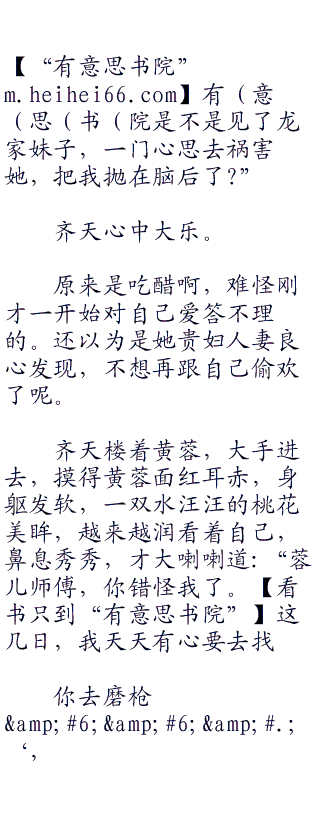 【“有意思书院”
m.heihei66.com】有（意
（思（书（院是不是见了龙
家妹子，一门心思去祸害
她，把我抛在脑后了?”
齐天心中大乐。
原来是吃醋啊，难怪刚
才一开始对自己爱答不理
的。还以为是她贵妇人妻良
心发现，不想再跟自己偷欢
了呢。
齐天楼着黄蓉，大手进
去，摸得黄蓉面红耳赤，身
躯发软，一双水汪汪的桃花
美眸，越来越润看着自己，
鼻息秀秀，才大喇喇道:“蓉
儿师傅，你错怪我了。【看
书只到“有意思书院”】这
几日，我天天有心要去找
你去磨枪
&amp;#6;&amp;#6;&amp;#.;
‘,